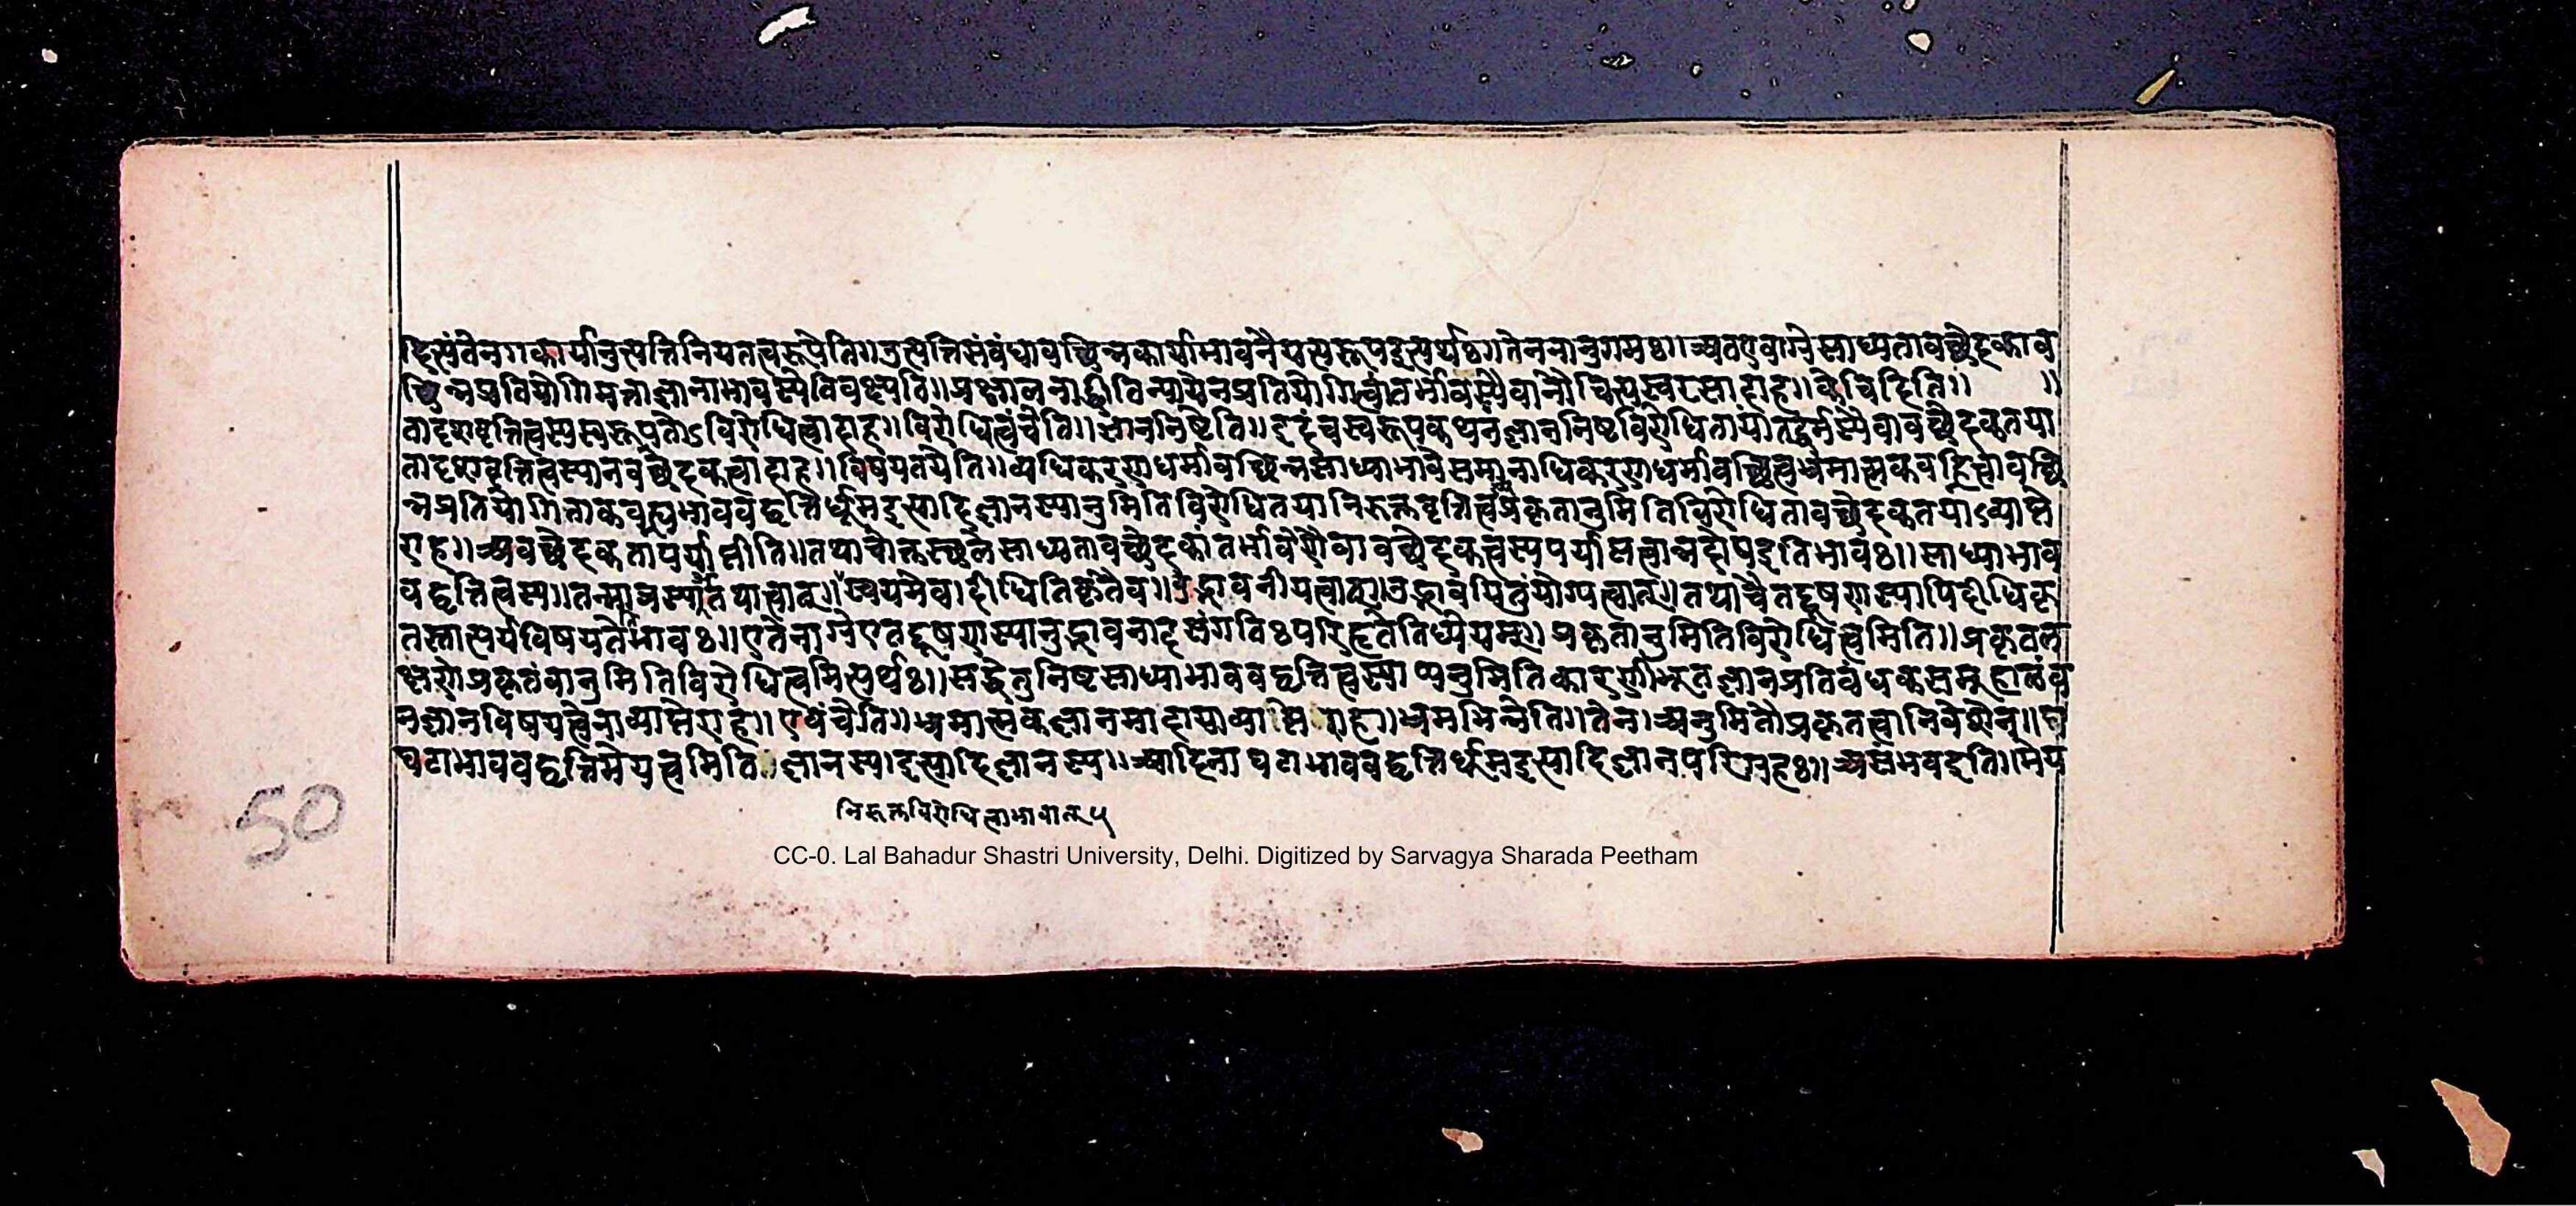 दिसंबंनगकार्यानुत्पत्तिनियतत्वरूपेति॥उत्पत्तिसंबंधावछिन्नकार्याभावनैयत्यरूपइत्यर्थः॥तेननानुगमः॥अतएवाग्रेसाध्यतावच्छेदकाव
छिन्नप्रतियोगिमत्ताज्ञानाभावस्येविवक्ष्यति॥प्रक्षालनाद्धीतिन्यायेनप्रतियोगित्वांतर्भावस्यैवानौचित्यस्वरसादाह॥केचिदिति॥ ॥
तादृशवृत्तित्वस्यस्वरूपतोऽविरोधित्वादाह॥विरोधित्वंचेति॥ज्ञाननिष्ठेति॥इदंचस्वरूपकथनंज्ञाननिष्ठविरोधितायांतद्धर्मस्यैवावच्छेदकतया
तादृशवृत्तित्वस्यानवच्छेदकत्वादाह॥विषयतयेति॥व्यधिकरणधर्मावछिन्नसाध्याभावेसमानाधिकरणधर्मावछिन्नत्वभ्रमात्मकवह्नित्वावछि
न्नप्रतियोगिताकवह्न्यभाववद्वृत्तिर्धूमइत्यादिज्ञानस्यानुमितिविरोधितयानिरुक्तवृत्तित्वंप्रकृतानुमितिविरोधितावच्छेदकतयाऽव्याप्ते
राह॥अवच्छेदकतापर्याप्तीति॥तथाचोक्तस्थलेसाध्यतावच्छेदकांतर्भावेणैवावच्छेदकत्वस्यपर्याप्तत्वान्नदोषइतिभावः॥साध्याभाव
वद्वृत्तित्वस्य॥तन्मात्रस्य॥तथात्वात्॥स्वयमेव॥दीधितिकृतैव॥उद्भावनीयत्वात्॥उद्भावयितुंयोग्यत्वात्॥तथाचैतद्दूषणस्यापिदीधिकृ
तस्तात्पर्यविषयतेतिभावः॥एतेनाग्रेएतद्दूषणस्यानुद्भावनादसंगतिःपरिहृतेतिध्येयम्॥प्रकृतानुमितिविरोधित्वमिति॥प्रकृतल
क्षणेप्रकृतंवानुमितिविरोधित्वमित्यर्थः॥सद्धेतुनिष्ठसाध्याभाववद्वृत्तित्वस्याप्यनुमितिकारणीभूतज्ञानप्रतिबंधकसमूहालंब
नज्ञानविषयत्वेनाव्याप्तेराह॥एवंचेति॥भ्रमात्मकज्ञानमादायाव्याप्तेराह॥भ्रमभिन्नेति॥तेन॥अनुमितौप्रकृतत्वानिवेशेन॥घ
घटाभाववद्वृत्तिमेयत्वमिति॥ज्ञानस्य॥इत्यादिज्ञानस्य॥आदिना घटाभाववद्वृत्तिर्धूमइत्यादिज्ञानपरिग्रहः॥असंभवइति॥मेय
निरुक्तविरोधित्वाभावात् ५
50
CC-0. Lal Bahadur Shastri University, Delhi. Digitized by Sarvagya Sharada Peetham